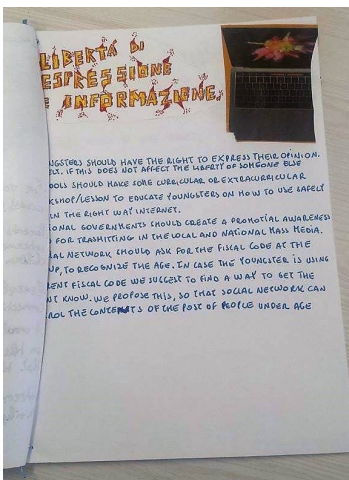 LIBERTÁ DI
ESPRESSIONE
E INFORMAZIONE.
NGSTERS SHOULD HAVE THE RIGHT TO EXPRESS THEIR OPINION.
IF THIS DOES NOT AFFECT THE LIBERTY OF SOMEONE ELSE
OOLS SHOULD MAKE SOME CURRICULAR OR EXTRACURRICULAR
KSHOP/LESSON TO EDUCATE YOUNGSTERS ON HOW TO USE SAFELY
IN THE RIGHT WAY INTERNET.
IONAL GOVERNMENTS SHOULD CREATE A PROMOTIAL AWARENESS
FOR TRASMITTING IN THE LOCAL AND NATIONAL MASS MEDIA.
IAL NETWORK SHOULD ASK FOR THE FISCAL CODE AT THE
UP, TO RECOGNIZE THE AGE. IN CASE THE YOUNGSTER IS USING
RENT FISCAL CODE WE SUGGEST TO FIND A WAY TO GET THE
NT KNOW. WE PROPOSE THIS, SO THAT SOCIAL NETWORK CAN
ROL THE CONTENTS OF THE POST OF PEOPLE UNDER AGE